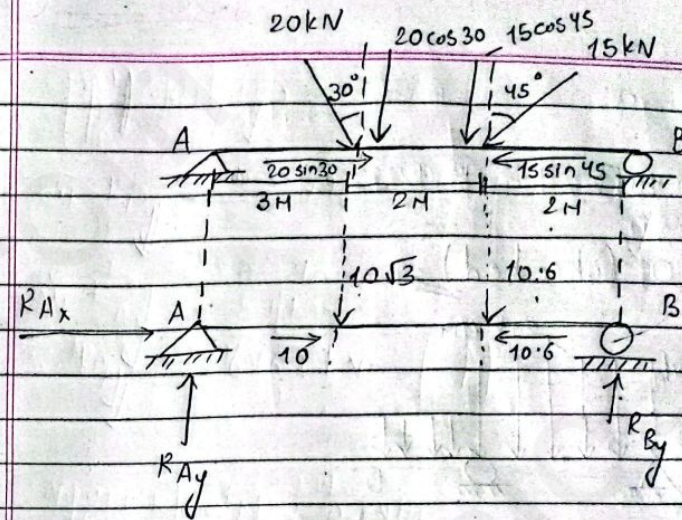 20kN 20cos30 15cos45 15kN
30° 45°
A B
20sin30 15sin45
3M 2M 2M
10√3 10.6
RAx A B
10 10.6
RAy RBy